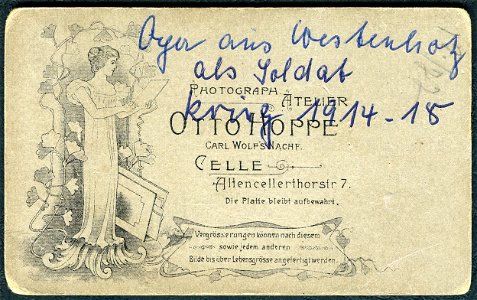 Oger aus Westenholz
als Soldat
krieg 1914-18
PHOTOGRAPH
ATELIER
OTTO HOPPE
CARL WOLF'S NACHF.
CELLE
Altencellerthorstr 7.
Die Platte bleibt aufbewahrt.
Vergrösserungen können nach diesem
sowie jedem anderen
Bilde bis über Lebensgrösse angefertigt werden.